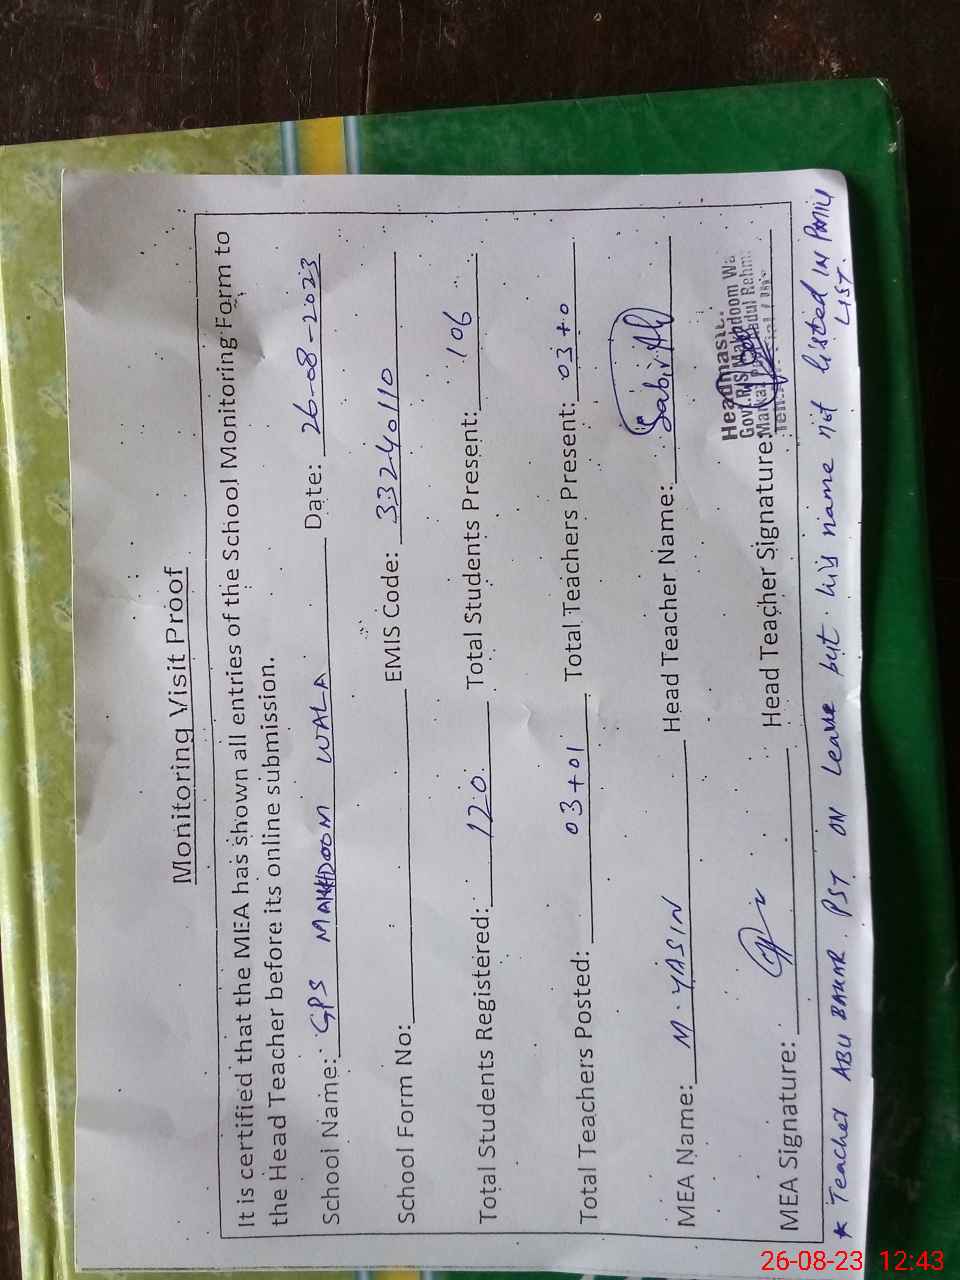 Monitoring Visit Proof
It is certified that the MEA has shown all entries of the School Monitoring Form to
the Head Teacher before its online submission.
School Name: GPS MAKHDOOM WALA Date: 26-08-2023
School Form No: EMIS Code: 33240110
Total Students Registered: 120 Total Students Present: 106
Total Teachers Posted: 03+01 Total Teachers Present: 03+0
MEA Name: M. YASIN Head Teacher Name: Sabir Ali
Headmaster
Govt. P/S Makhdoom Wa
MEA Signature: Head Teacher Signature:
* Teacher ABU BAKAR PST ON Leave but his name not listed in
LIST.
26-08-23 12:43